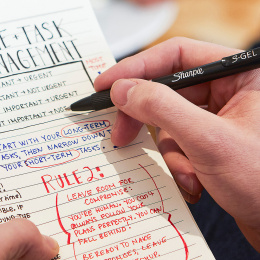 E + TASK
NAGEMENT
TANT + URGENT
TANT + NOT URGENT
IMPORTANT + URGENT
IMPORTANT + NOT
START WITH YOUR LONG-TERM
TASKS, THEN NARROW DOWN T
YOUR SHORT-TERM TASKS.
RULE 2:
LEAVE ROOM FOR
COMPROMISE.
YOU'RE HUMAN. YOU WON'T
ALWAYS FOLLOW YOUR
PLANS PERFECTLY. YOU CAN
FALL BEHIND!
BE READY TO MAKE
LEAVE
Sharpie
S·GEL